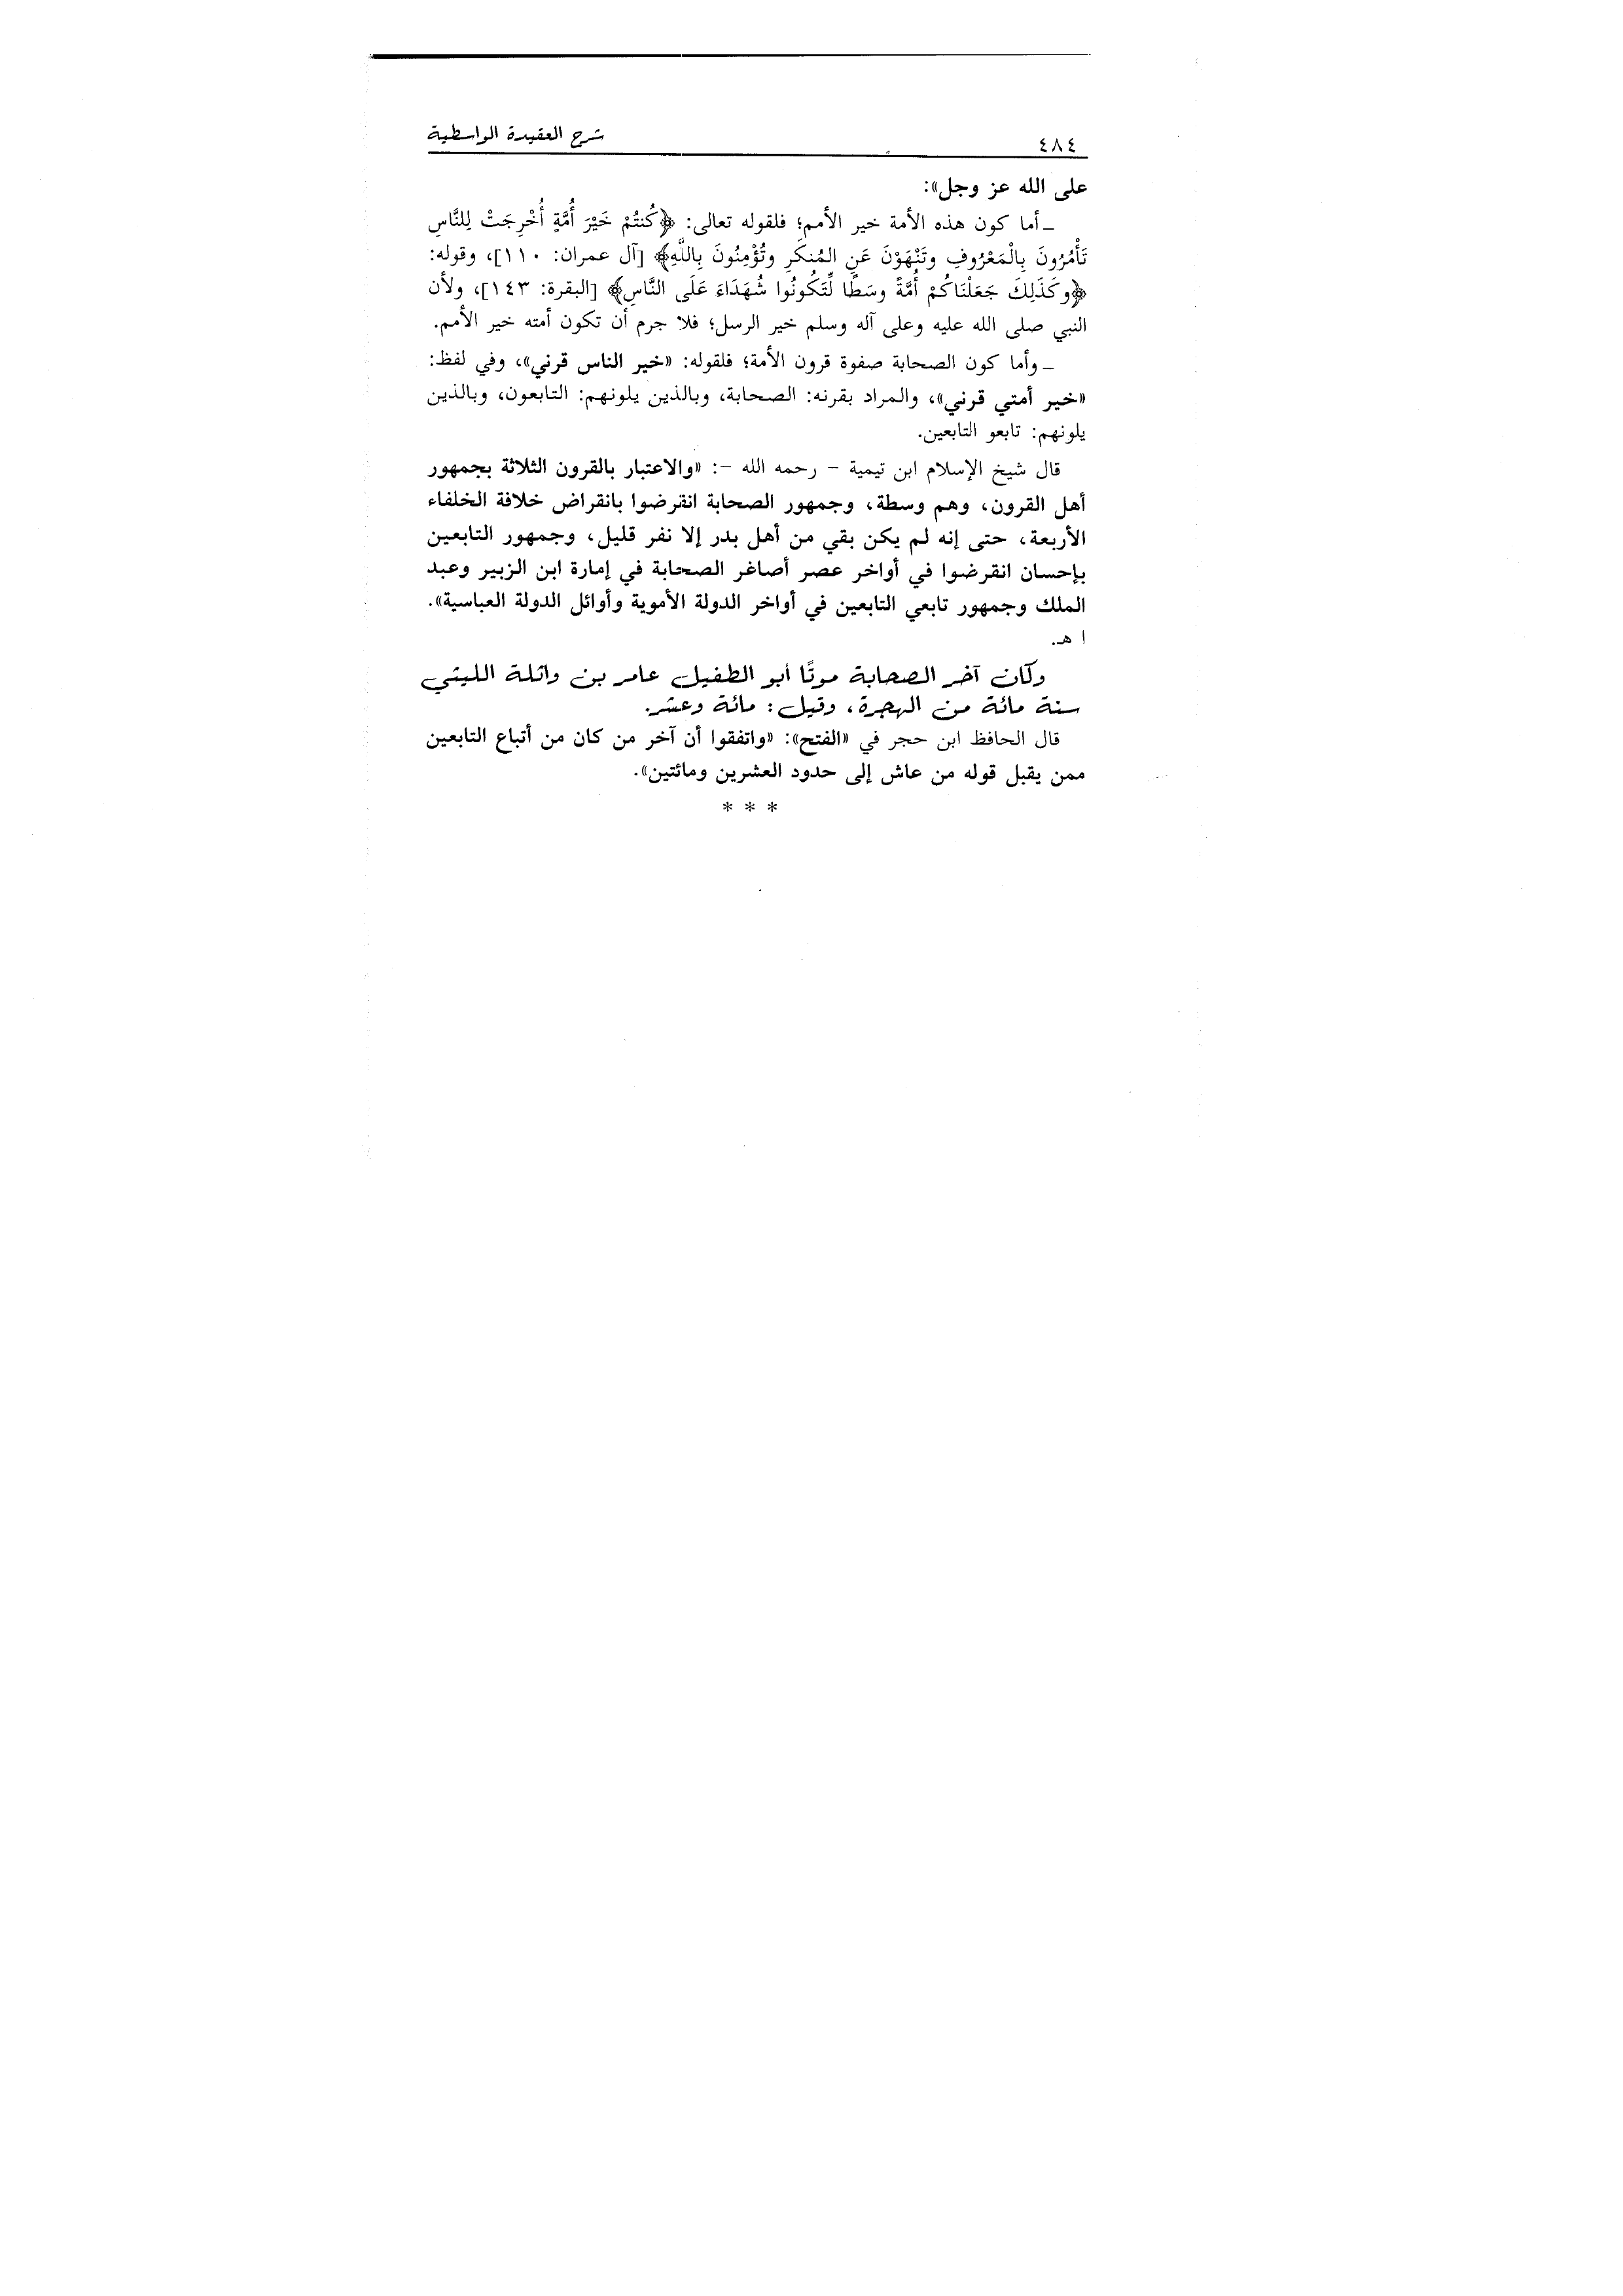 ٤٨٤
شرح العقيدة الواسطية
على الله عز وجل»:
ـ أما كون هذه الأمة خير الأمم؛ فلقوله تعالى: ﴿كُنتُمْ خَيْرَ أُمَّةٍ أُخْرِجَتْ لِلنَّاسِ
تَأْمُرُونَ بِالْمَعْرُوفِ وتَنْهَوْنَ عَنِ المُنكَرِ وتُؤْمِنُونَ بِاللَّهِ﴾ [آل عمران: ١١٠]، وقوله:
﴿وكَذَلِكَ جَعَلْنَاكُمْ أُمَّةً وسَطًا لِّتَكُونُوا شُهَدَاءَ عَلَى النَّاسِ﴾ [البقرة: ١٤٣]، ولأن
النبي صلى الله عليه وعلى آله وسلم خير الرسل؛ فلا جرم أن تكون أمته خير الأمم.
ـ وأما كون الصحابة صفوة قرون الأمة؛ فلقوله: «خير الناس قرني»، وفي لفظ:
«خير أمتي قرني»، والمراد بقرنه: الصحابة، وبالذين يلونهم: التابعون، وبالذين
يلونهم: تابعو التابعين.
قال شيخ الإسلام ابن تيمية – رحمه الله –: «والاعتبار بالقرون الثلاثة بجمهور
أهل القرون، وهم وسطة، وجمهور الصحابة انقرضوا بانقراض خلافة الخلفاء
الأربعة، حتى إنه لم يكن بقي من أهل بدر إلا نفر قليل، وجمهور التابعين
بإحسان انقرضوا في أواخر عصر أصاغر الصحابة في إمارة ابن الزبير وعبد
الملك وجمهور تابعي التابعين في أواخر الدولة الأموية وأوائل الدولة العباسية».
ا هـ.
وكان آخر الصحابة موتًا أبو الطفيل عامر بن واثلة الليثي
سنة مائة من الهجرة، وقيل: مائة وعشر.
قال الحافظ ابن حجر في «الفتح»: «واتفقوا أن آخر من كان من أتباع التابعين
ممن يقبل قوله من عاش إلى حدود العشرين ومائتين».
* * *